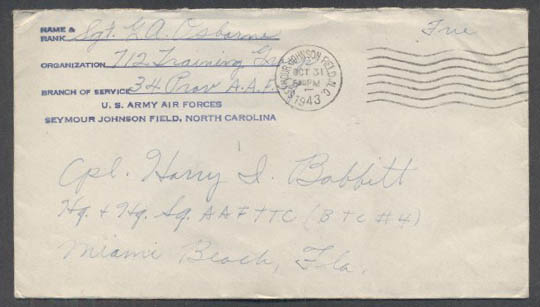 NAME & RANK Sgt. G. A. Osborne
ORGANIZATION 712 Training Gr
BRANCH OF SERVICE 34 Prov A.A.F.
U. S. ARMY AIR FORCES
SEYMOUR JOHNSON FIELD, NORTH CAROLINA
SEYMOUR JOHNSON FIELD, N.C.
OCT 31
PM
1943
Free
Cpl. Harry I. Babbitt
Hq. & Hq. Sq. AAFTTC (BTC #4)
Miami Beach, Fla.